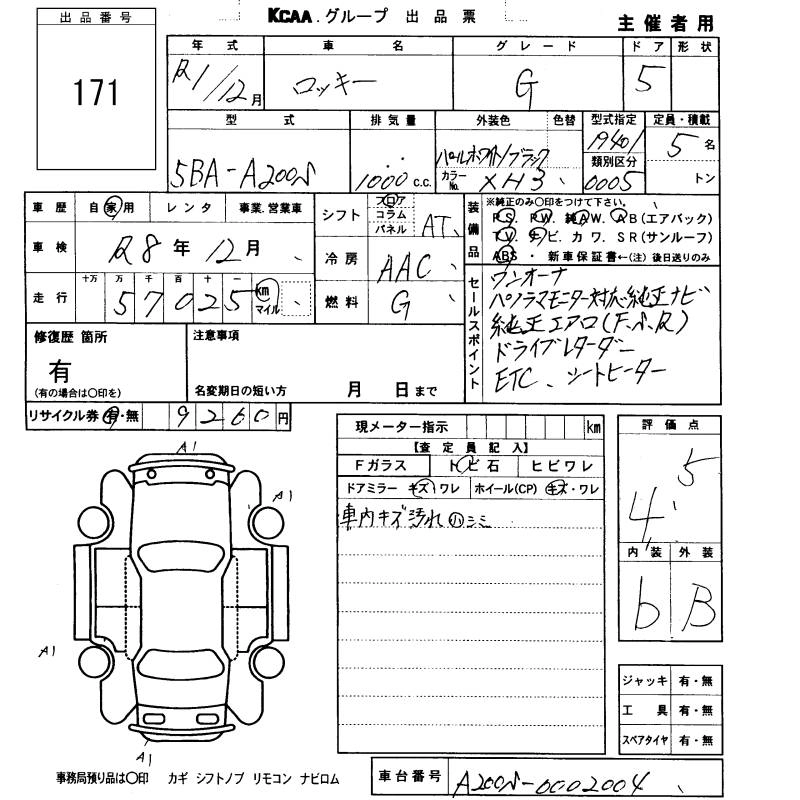 KCAA.グループ 出品票
主催者用
出品番号
171
年式 車名 グレード ドア 形状
R1/12月 ロッキー G 5
型式 排気量 外装色 色替 型式指定 定員・積載
5BA-A200S 1000c.c. パールホワイト/ブラック 19401 5名
カラーNo. XH3 類別区分 0005 トン
車歴 自家用 レンタ 事業.営業車
シフト フロア コラム パネル AT
車検 R8年12月
冷房 AAC
走行 十万 万 千 百 十 一
57025 km マイル
燃料 G
装備品
※純正のみ〇印をつけて下さい。
P S. P W. 純A W. A B(エアバック)
T V. ナビ. カワ. S R(サンルーフ)
ABS ・ 新車保証書←(注)後日送りのみ
セールスポイント
ワンオーナ
パノラマモニター対応純正ナビ
純正エアロ(F.S.R)
ドライブレコーダー
ETC、シートヒーター
修復歴 箇所
有
(有の場合は〇印を)
注意事項
名変期日の短い方 月 日まで
リサイクル券 有・無 9260円
現メーター指示 km
【査定員記入】
Fガラス トビ石 ヒビワレ
ドアミラー キズ・ワレ ホイール(CP) キズ・ワレ
車内キズ汚れ小シミ
評価点
4.5
内装 外装
b B
A1
A1
A1
A1
A1
ジャッキ 有・無
工具 有・無
スペアタイヤ 有・無
事務局預り品は〇印 カギ シフトノブ リモコン ナビロム
車台番号 A200S-0002004